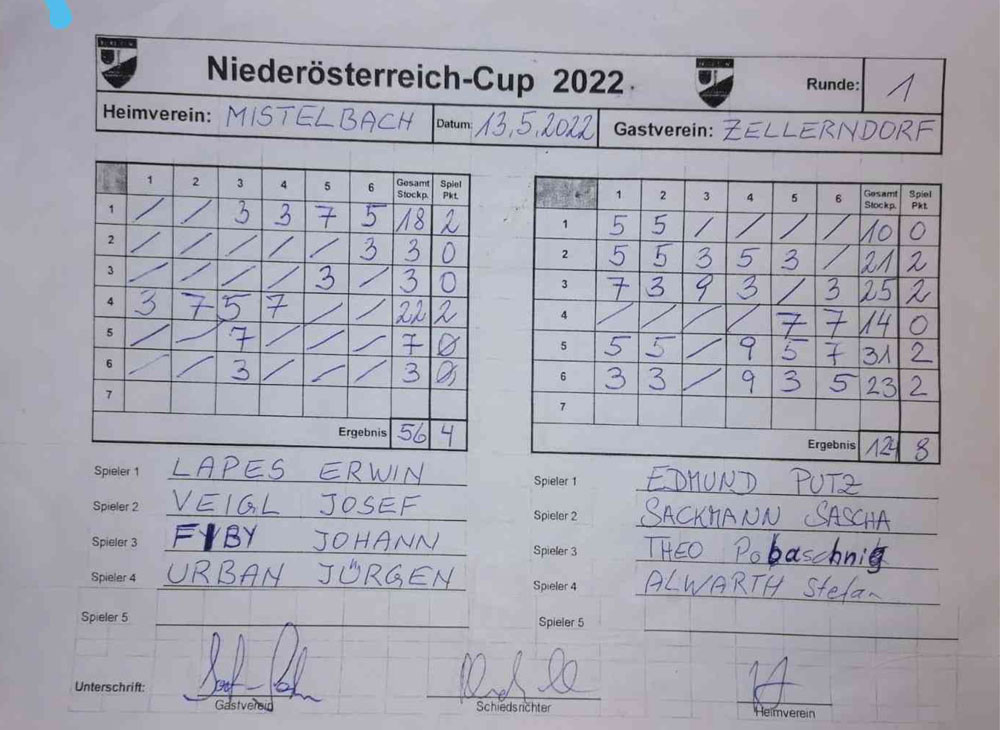 Niederösterreich-Cup 2022.
Runde: 1
Heimverein: MISTELBACH Datum: 13.5.2022 Gastverein: ZELLERNDORF
1 2 3 4 5 6 Gesamt Stockp. Spiel Pkt.
1 / / 3 3 7 5 18 2
2 / / / / / 3 3 0
3 / / / / 3 / 3 0
4 3 7 5 7 / / 22 2
5 / / 7 / / / 7 0
6 / / 3 / / / 3 0
7
Ergebnis 56 4
1 2 3 4 5 6 Gesamt Stockp. Spiel Pkt.
1 5 5 / / / / 10 0
2 5 5 3 5 3 / 21 2
3 7 3 9 3 / 3 25 2
4 / / / / 7 7 14 0
5 5 5 / 9 5 7 31 2
6 3 3 / 9 3 5 23 2
7
Ergebnis 124 8
Spieler 1 LAPES ERWIN
Spieler 2 VEIGL JOSEF
Spieler 3 FYBY JOHANN
Spieler 4 URBAN JÜRGEN
Spieler 5
Spieler 1 EDMUND PUTZ
Spieler 2 SACKMANN SASCHA
Spieler 3 THEO Pobaschnig
Spieler 4 ALWARTH Stefan
Spieler 5
Unterschrift:
Gastverein Schiedsrichter Heimverein